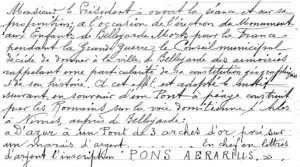 Monsieur le Président a ouvert la séance et sur sa
proposition, à l'occasion de l'érection du Monument
aux Enfants de Bellegarde Morts pour la France
pendant la Grande Guerre, le Conseil municipal
décide de donner à la ville de Bellegarde des armoiries
rappelant une particularité de sa constitution géographique
de son histoire. A cet effet est adopté le motif
suivant, en souvenir d'un Pont à péage construit
par les Romains sur la voie domitienne d'Arles
à Nimes, auprès de Bellegarde:
"D'azur à un Pont de 3 arches d'or, posé sur
un marais d'argent. En chef en lettres
d'argent l'inscription PONS AERARIUS."